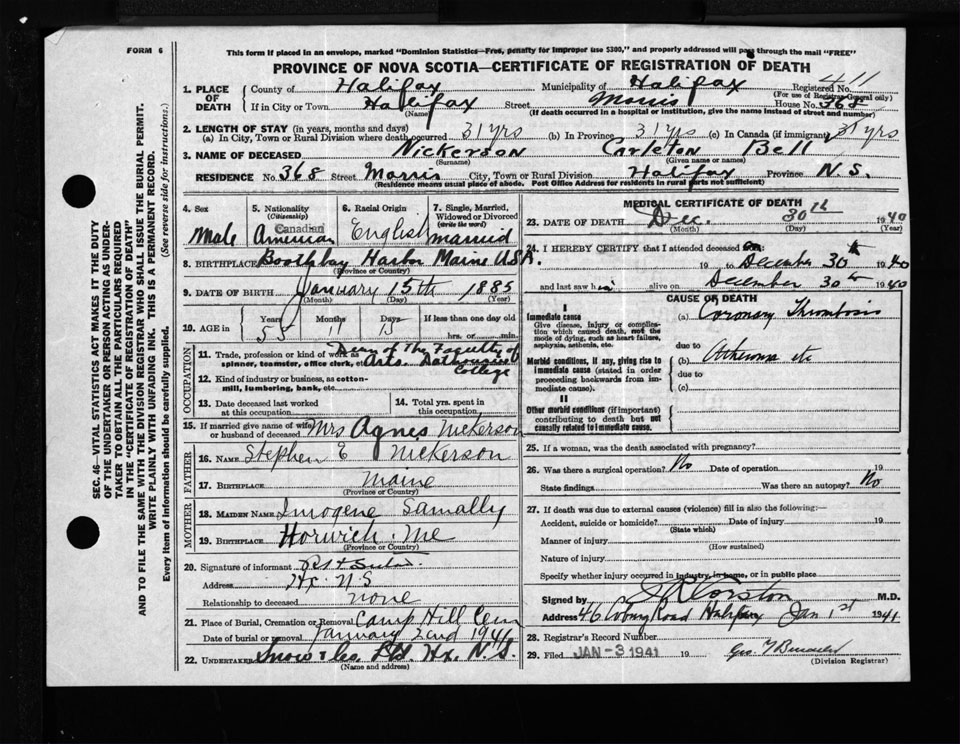 FORM 6
This form if placed in an envelope, marked "Dominion Statistics—Free, penalty for improper use $300," and properly addressed will pass through the mail "FREE"
PROVINCE OF NOVA SCOTIA—CERTIFICATE OF REGISTRATION OF DEATH
411
1. PLACE OF DEATH County of Halifax Municipality of Halifax Registered No.
(For use of Registrar General only)
If in City or Town Halifax Street Morris House No. 368
(Name) (If death occurred in a hospital or institution, give the name instead of street and number)
2. LENGTH OF STAY (in years, months and days)
(a) In City, Town or Rural Division where death occurred 31 yrs (b) In Province 31 yrs (c) In Canada (if immigrant) 31 yrs
3. NAME OF DECEASED Nickerson Carleton Bell
(Surname) (Given name or names)
RESIDENCE No. 368 Street Morris City, Town or Rural Division Halifax Province N.S.
(Residence means usual place of abode. Post Office Address for residents in rural parts not sufficient)
SEC. 46—VITAL STATISTICS ACT MAKES IT THE DUTY
OF THE UNDERTAKER OR PERSON ACTING AS UNDER-
TAKER TO OBTAIN ALL THE PARTICULARS REQUIRED
IN THE "CERTIFICATE OF REGISTRATION OF DEATH"
AND TO FILE THE SAME WITH THE DIVISION REGISTRAR WHO SHALL ISSUE THE BURIAL PERMIT.
WRITE PLAINLY WITH UNFADING INK. THIS IS A PERMANENT RECORD.
Every item of information should be carefully supplied. (See reverse side for instructions.)
4. Sex Male
5. Nationality (Citizenship) Canadian American
6. Racial Origin English
7. Single, Married, Widowed or Divorced (Write the word) married
8. BIRTHPLACE Boothbay Harbor Maine USA.
(Province or Country)
9. DATE OF BIRTH January 15th 1885
(Month) (Day) (Year)
10. AGE in Years 55 Months 11 Days 15 If less than one day old
hrs. or min.
OCCUPATION
11. Trade, profession or kind of work as spinner, teamster, office clerk, etc. Dean of The Faculty of
Arts. Dalhousie
College
12. Kind of industry or business, as cotton-mill, lumbering, bank, etc.
13. Date deceased last worked at this occupation
14. Total yrs. spent in this occupation
15. If married give name of wife or husband of deceased Mrs Agnes Nickerson
FATHER
16. NAME Stephen E Nickerson
17. BIRTHPLACE Maine
(Province or Country)
MOTHER
18. MAIDEN NAME Imogene
19. BIRTHPLACE Me
(Province or Country)
20. Signature of informant
Address Hx. N S
Relationship to deceased none
21. Place of Burial, Cremation or Removal Camp Hill Cem
Date of burial or removal January 2nd 1941
22. Undertaker Snow & Co. Ltd. Hx. N.S.
(Name and address)
MEDICAL CERTIFICATE OF DEATH
23. DATE OF DEATH Dec. 30th 1940
(Month) (Day) (Year)
24. I HEREBY CERTIFY that I attended deceased
19 to December 30th 1940
and last saw h alive on December 30th 1940
CAUSE OF DEATH
I
Immediate cause
Give disease, injury or complication which caused death, not the mode of dying, such as heart failure, asphyxia, asthenia, etc.
(a) Coronary Thrombosis
due to
Morbid conditions, if any, giving rise to immediate cause (stated in order proceeding backwards from immediate cause).
(b) Atheroma etc
due to
(c)
II
Other morbid conditions (if important) contributing to death but not causally related to immediate cause.
25. If a woman, was the death associated with pregnancy?
26. Was there a surgical operation? No Date of operation 19
State findings Was there an autopsy? No
27. If death was due to external causes (violence) fill in also the following:—
Accident, suicide or homicide? Date of injury 19
(State which)
Manner of injury
(How sustained)
Nature of injury
Specify whether injury occurred in industry, in home, or in public place
Signed by M.D.
Address 46 Coburg Road Halifax Jan 1st 1941
28. Registrar's Record Number
29. Filed JAN - 3 1941 19
(Division Registrar)